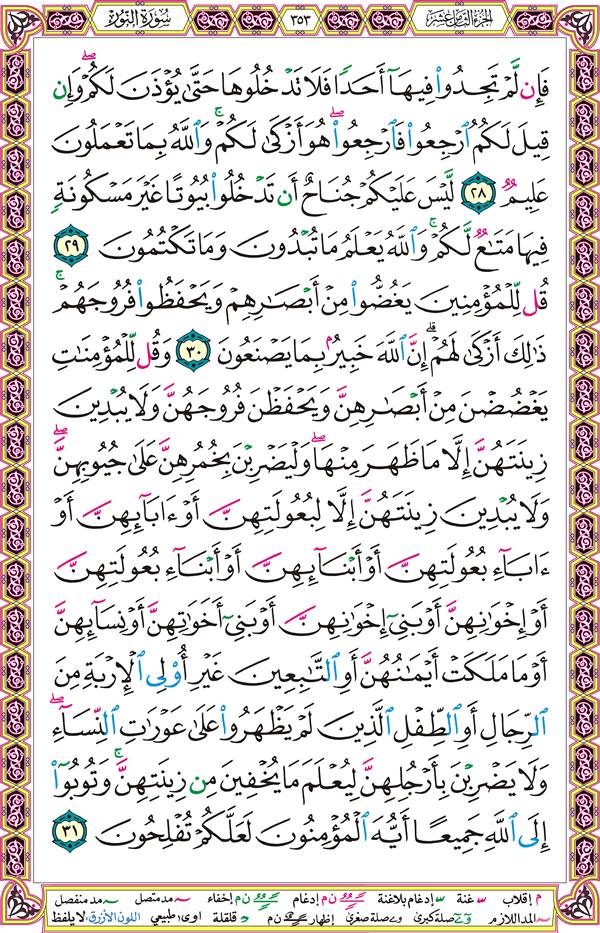 الجزء الثامن عشر ٣٥٣ سورة النور
فَإِن لَّمْ تَجِدُوا۟ فِيهَآ أَحَدًا فَلَا تَدْخُلُوهَا حَتَّىٰ يُؤْذَنَ لَكُمْ ۖ وَإِن
قِيلَ لَكُمُ ٱرْجِعُوا۟ فَٱرْجِعُوا۟ ۖ هُوَ أَزْكَىٰ لَكُمْ ۚ وَٱللَّهُ بِمَا تَعْمَلُونَ
عَلِيمٌ ٢٨ لَّيْسَ عَلَيْكُمْ جُنَاحٌ أَن تَدْخُلُوا۟ بُيُوتًا غَيْرَ مَسْكُونَةٍ
فِيهَا مَتَـٰعٌ لَّكُمْ ۚ وَٱللَّهُ يَعْلَمُ مَا تُبْدُونَ وَمَا تَكْتُمُونَ ٢٩
قُل لِّلْمُؤْمِنِينَ يَغُضُّوا۟ مِنْ أَبْصَـٰرِهِمْ وَيَحْفَظُوا۟ فُرُوجَهُمْ ۚ
ذَٰلِكَ أَزْكَىٰ لَهُمْ ۗ إِنَّ ٱللَّهَ خَبِيرٌۢ بِمَا يَصْنَعُونَ ٣٠ وَقُل لِّلْمُؤْمِنَـٰتِ
يَغْضُضْنَ مِنْ أَبْصَـٰرِهِنَّ وَيَحْفَظْنَ فُرُوجَهُنَّ وَلَا يُبْدِينَ
زِينَتَهُنَّ إِلَّا مَا ظَهَرَ مِنْهَا ۖ وَلْيَضْرِبْنَ بِخُمُرِهِنَّ عَلَىٰ جُيُوبِهِنَّ ۖ
وَلَا يُبْدِينَ زِينَتَهُنَّ إِلَّا لِبُعُولَتِهِنَّ أَوْ ءَابَآئِهِنَّ أَوْ
ءَابَآءِ بُعُولَتِهِنَّ أَوْ أَبْنَآئِهِنَّ أَوْ أَبْنَآءِ بُعُولَتِهِنَّ
أَوْ إِخْوَٰنِهِنَّ أَوْ بَنِىٓ إِخْوَٰنِهِنَّ أَوْ بَنِىٓ أَخَوَٰتِهِنَّ أَوْ نِسَآئِهِنَّ
أَوْ مَا مَلَكَتْ أَيْمَـٰنُهُنَّ أَوِ ٱلتَّـٰبِعِينَ غَيْرِ أُو۟لِى ٱلْإِرْبَةِ مِنَ
ٱلرِّجَالِ أَوِ ٱلطِّفْلِ ٱلَّذِينَ لَمْ يَظْهَرُوا۟ عَلَىٰ عَوْرَٰتِ ٱلنِّسَآءِ ۖ
وَلَا يَضْرِبْنَ بِأَرْجُلِهِنَّ لِيُعْلَمَ مَا يُخْفِينَ مِن زِينَتِهِنَّ ۚ وَتُوبُوٓا۟
إِلَى ٱللَّهِ جَمِيعًا أَيُّهَ ٱلْمُؤْمِنُونَ لَعَلَّكُمْ تُفْلِحُونَ ٣١
م إقلاب غنة إدغام بلاغنة ن م إدغام ن م إخفاء مد متصل مد منفصل
المد اللازم صلة كبرى صلة صغرى إظهار ن م قلقلة اوى طبيعي اللون الأزرق: لا يلفظ